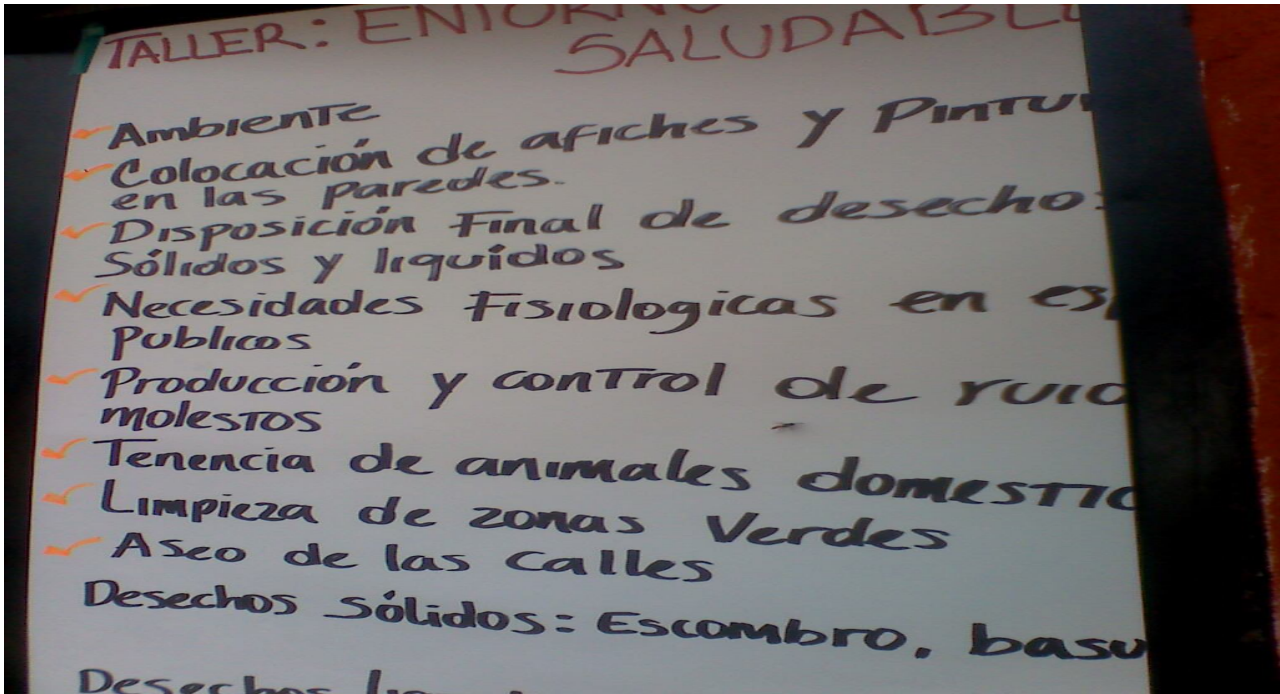 TALLER: ENTORNO
SALUDABLE
Ambiente
Colocación de afiches y Pintu
en las paredes.
Disposición Final de desechos
Sólidos y liquídos
Necesidades Fisiologicas en esp
Publicos
Producción y control de ruid
molestos
Tenencia de animales domestic
Limpieza de zonas Verdes
Aseo de las Calles
Desechos sólidos: Escombro, basu
Desechos